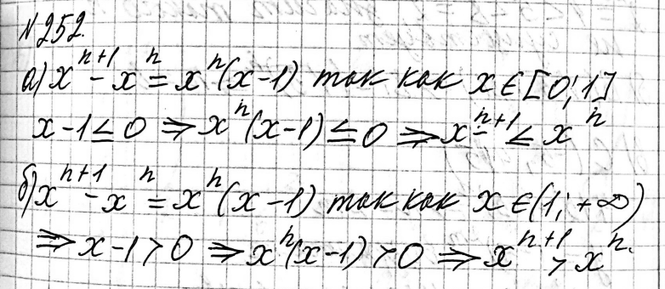 №252.
а) x^{n+1} - x^n = x^n(x-1) так как x ∈ [0; 1]
x-1 ≤ 0 ⇒ x^n(x-1) ≤ 0 ⇒ x^{n+1} ≤ x^n
б) x^{n+1} - x^n = x^n(x-1) так как x ∈ (1; +∞)
⇒ x-1 > 0 ⇒ x^n(x-1) > 0 ⇒ x^{n+1} > x^n.